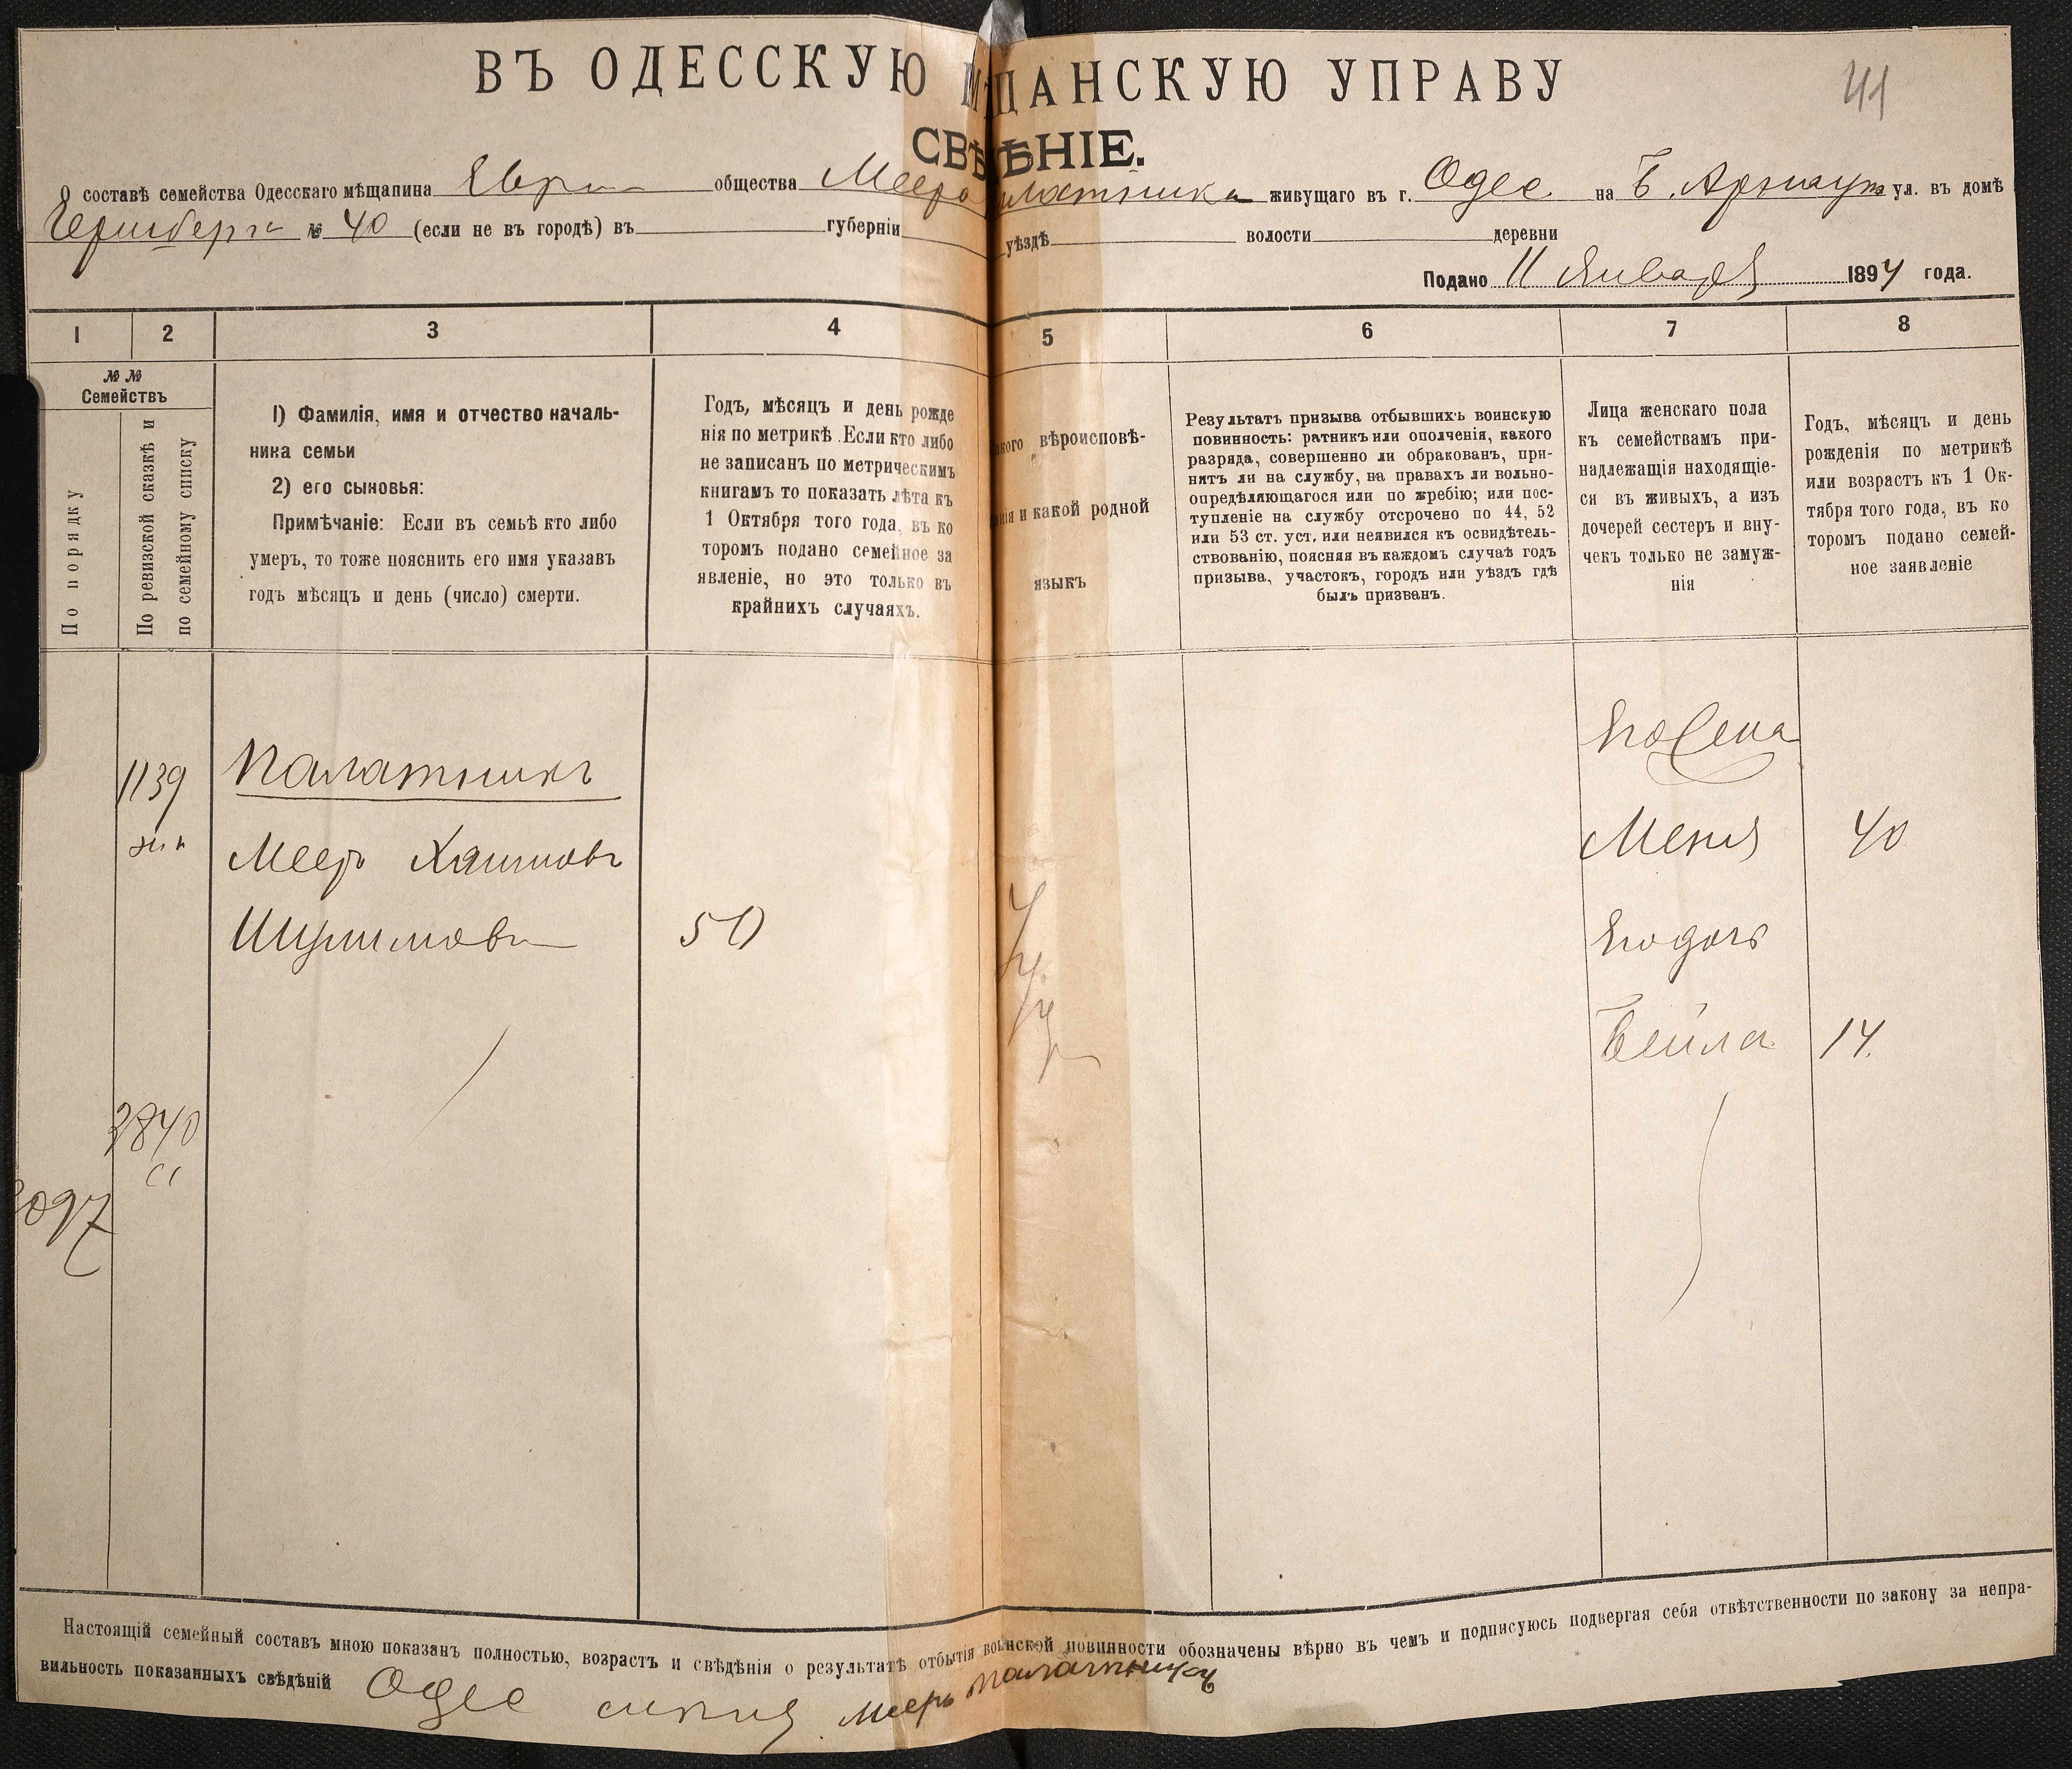 ВЪ ОДЕССКУЮ М ЩАНСКУЮ УПРАВУ
41
СВѢ ѢНІЕ.
О составѣ семейства Одесскаго мѣщанина Евр общества Меера латника живущаго въ г. Одес на Б. Арнаут ул. въ домѣ
№ 40 (если не въ городѣ) въ губерніи уѣздѣ волости деревни
Подано 11 Января 1894 года.
1 2 3 4 5 6 7 8
№ №
Семействъ
По порядку
По ревизской сказкѣ и
по семейному списку
1) Фамилія, имя и отчество началь-
ника семьи
2) его сыновья:
Примѣчаніе: Если въ семьѣ кто либо
умеръ, то тоже пояснить его имя указавъ
годъ мѣсяцъ и день (число) смерти.
Годъ, мѣсяцъ и день рожде
нія по метрикѣ. Если кто либо
не записанъ по метрическимъ
книгамъ то показать лѣта къ
1 Октября того года, въ ко
торомъ подано семейное за
явленіе, но это только въ
крайнихъ случаяхъ.
акого вѣроисповѣ-
анія и какой родной
языкъ
Результатъ призыва отбывшихъ воинскую
повинность: ратникъ или ополченія, какого
разряда, совершенно ли обракованъ, при-
нятъ ли на службу, на правахъ ли вольно-
опредѣляющагося или по жребію; или пос-
тупленіе на службу отсрочено по 44, 52
или 53 ст. уст. или неявился къ освидѣтель-
ствованію, поясняя въ каждомъ случаѣ годъ
призыва, участокъ, городъ или уѣздъ гдѣ
былъ призванъ.
Лица женскаго пола
къ семействамъ при-
надлежащія находящіе-
ся въ живыхъ, а изъ
дочерей сестеръ и вну-
чекъ только не замуж-
нія
Годъ, мѣсяцъ и день
рожденія по метрикѣ
или возрастъ къ 1 Ок-
тября того года, въ ко
торомъ подано семей-
ное заявленіе
Его жена
1139 Палатникъ
Меня 40
Меер Хаимовъ
Шулимовъ 50
Его дочь
Бейла 14.
3840
3097
Настоящій семейный составъ мною показанъ полностью, возрастъ и свѣдѣнія о результатѣ отбытія воинской повинности обозначены вѣрно въ чемъ и подписуюсь подвергая себя отвѣтственности по закону за непра-
вильность показанныхъ свѣдѣній Одес Мееръ Палатникъ